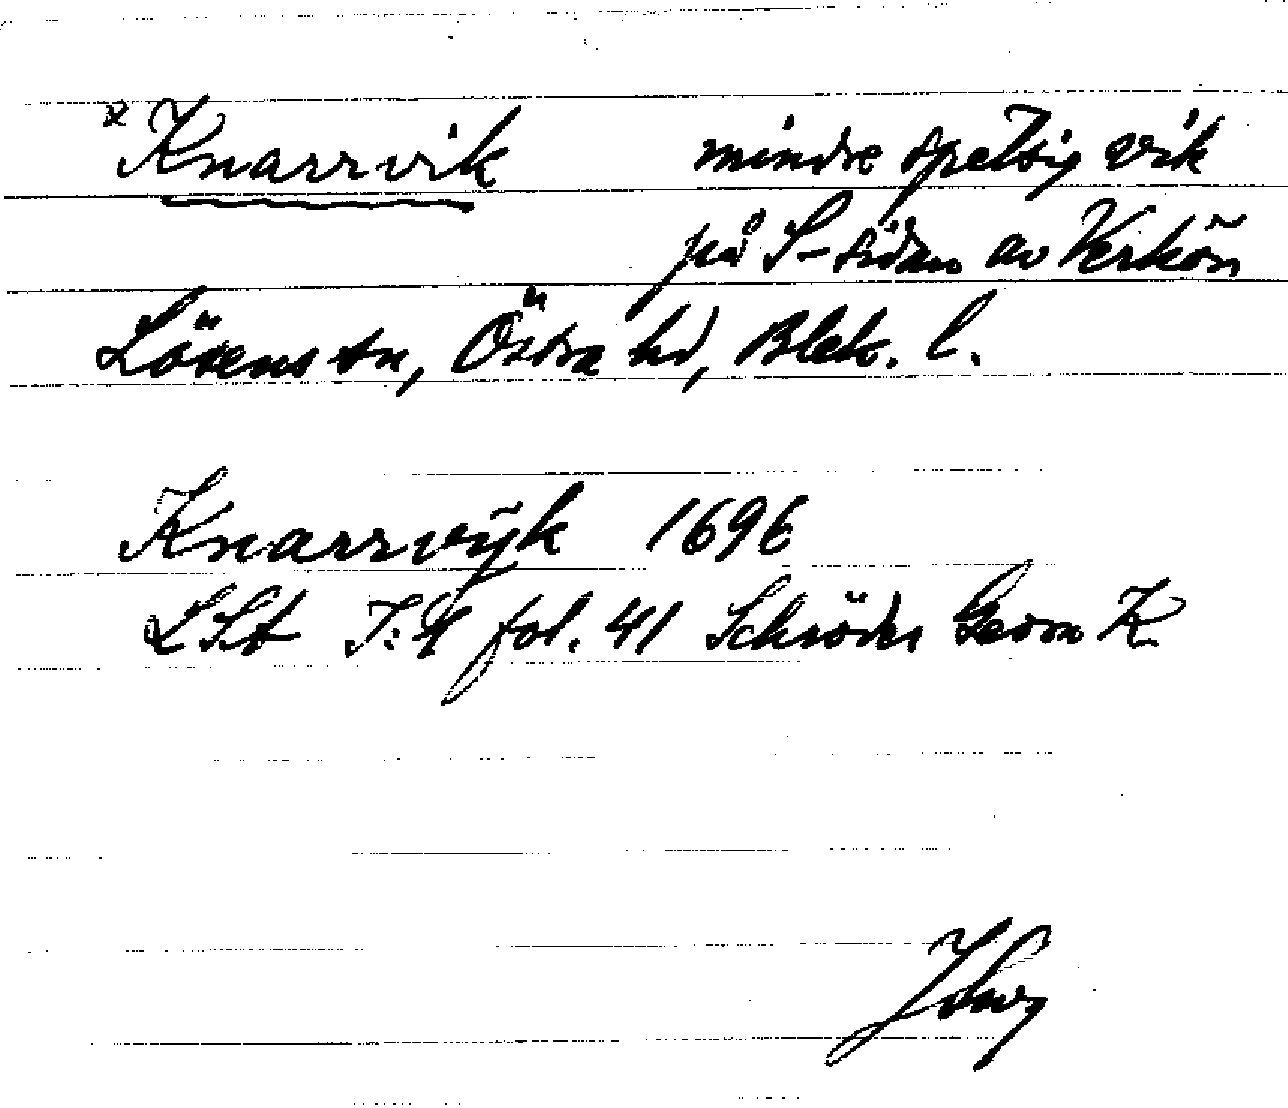 x Knarrvik mindre spetsig vik
på S-sidan av Verkön
Lösens sn, Östra hd, Blek. l.
Knarrvÿk 1696
LSA I:4 fol. 41 Schröder Geom K.